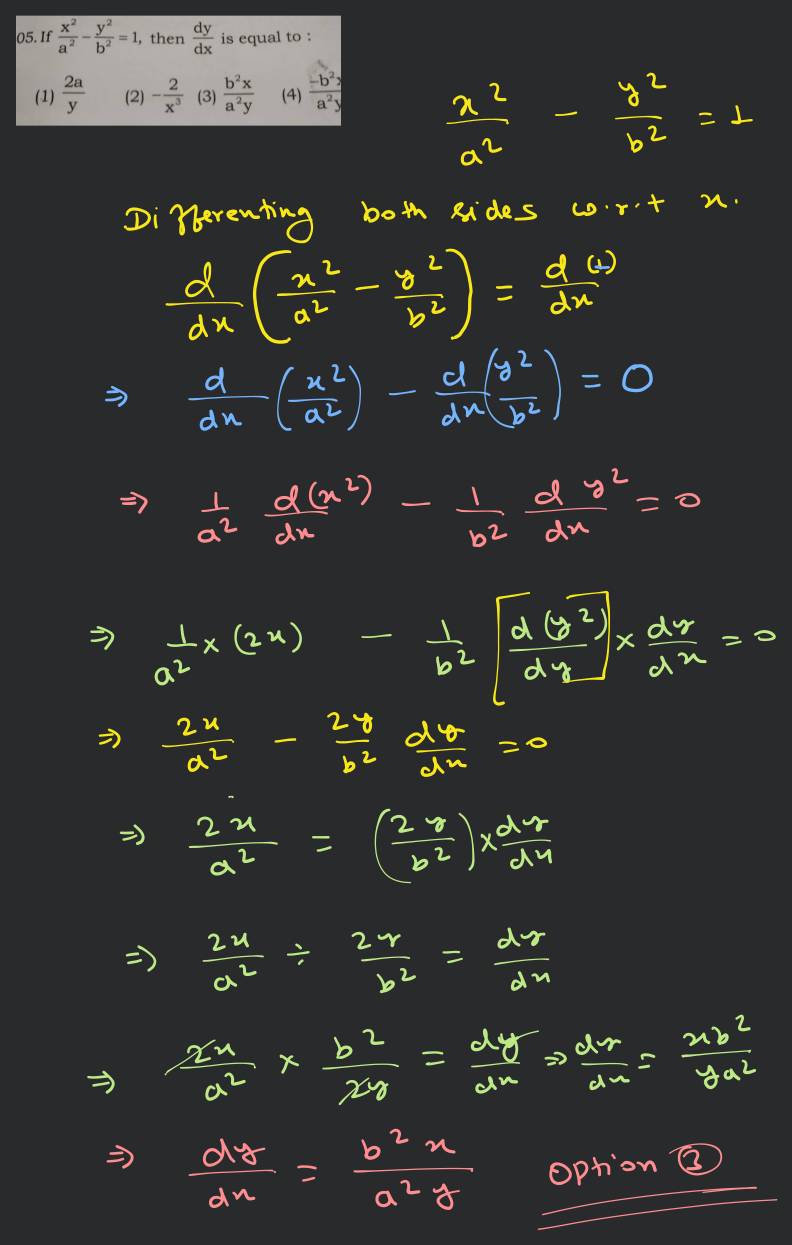 05. If x²/a² - y²/b² = 1, then dy/dx is equal to :
(1) 2a/y (2) -2/x³ (3) b²x/a²y (4) -b²x/a²y
x²/a² - y²/b² = 1
Differenting both sides w.r.t x.
d/dx (x²/a² - y²/b²) = d(1)/dx
⇒ d/dx (x²/a²) - d/dx (y²/b²) = 0
⇒ 1/a² d(x²)/dx - 1/b² d y²/dx = 0
⇒ 1/a² × (2x) - 1/b² [d(y²)/dy] × dy/dx = 0
⇒ 2x/a² - 2y/b² dy/dx = 0
⇒ 2x/a² = (2y/b²) × dy/dx
⇒ 2x/a² ÷ 2y/b² = dy/dx
⇒ 2x/a² × b²/2y = dy/dx ⇒ dy/dx = xb²/ya²
⇒ dy/dx = b²x/a²y Option ③